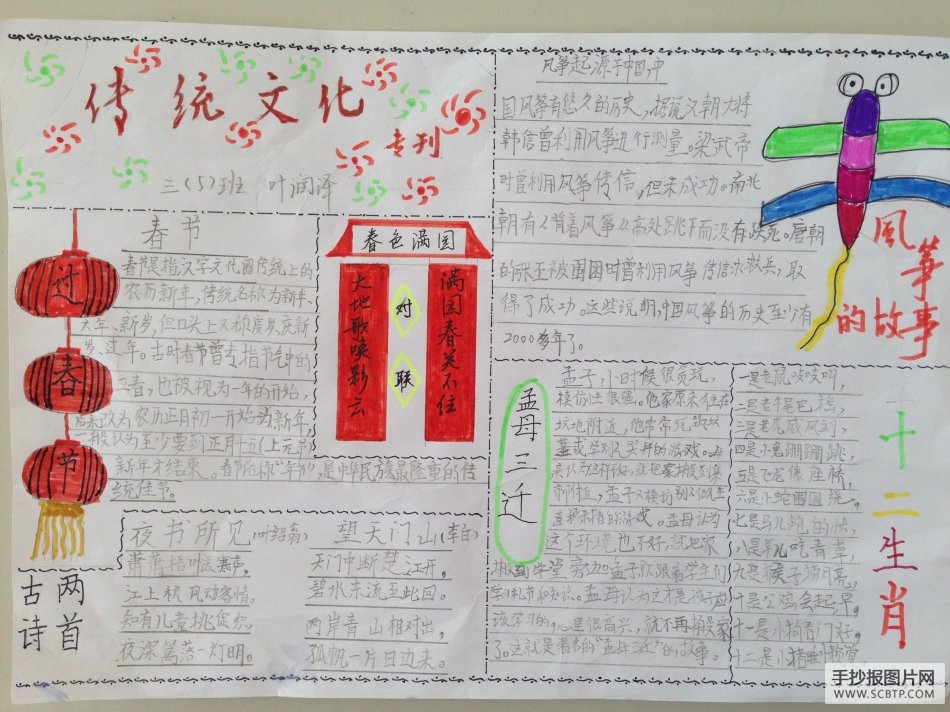 传统文化
专刊
三(5)班 叶润泽
过春节
春节
春节是指汉字文化圈传统上的
农历新年,传统名称为新年、
大年、新岁,但口头上又称度岁、庆新
岁、过年。古时春节曾专指节气中的
立春,也被视为一年的开始,
后来改为农历正月初一开始为新年,
一般认为至少要到正月十五(上元节)
新年才结束。春节俗称“年节”,是中华民族最隆重的传
统佳节。
春色满园
大地歌唤彩云
对联
满园春关不住
古诗两首
夜书所见(叶绍翁)
萧萧梧叶送寒声,
江上秋风动客情。
知有儿童挑促织,
夜深篱落一灯明。
望天门山(李白)
天门中断楚江开,
碧水东流至此回。
两岸青山相对出,
孤帆一片日边来。
风筝起源于中国,中
国风筝有悠久的历史,据说汉朝大将
韩信曾利用风筝进行测量。梁武帝
时曾利用风筝传信,但未成功。南北
朝有人背着风筝从高处跳下而没有跌死。唐朝
的张丕被围困时曾利用风筝传信求救兵,取
得了成功。这些说明,中国风筝的历史至少有
2000多年了。
風筝的故事
孟母三迁
孟子小时候很贪玩,
模仿性很强。他家原来住在
坟地附近,他常常玩筑坟
墓或学别人哭拜的游戏。母
亲认为这样不好,就把家搬到集
市附近,孟子又模仿别人做生
意
的游戏。孟母认为
这个环境也不好,就把家
搬到学堂旁边。孟子就跟着学生们
学习礼节和知识。孟母认为这才是孩子应
该学习的,心里很高兴,就不再搬家
了。这就是著名的“孟母三迁”的故事。
一是老鼠吱吱叫,
二是老牛尾巴摇,
三是老虎威风到,
四是小兔蹦蹦跳,
五是飞龙像座桥,
六是小蛇圆圆绕。
七是马儿跑的快,
八是羊儿吃青草,
九是猴子捞月亮,
十是公鸡会起早。
十一是小狗看门好,
十二是小猪睡
十二生肖
手抄报图片网
WWW.SCBTP.COM